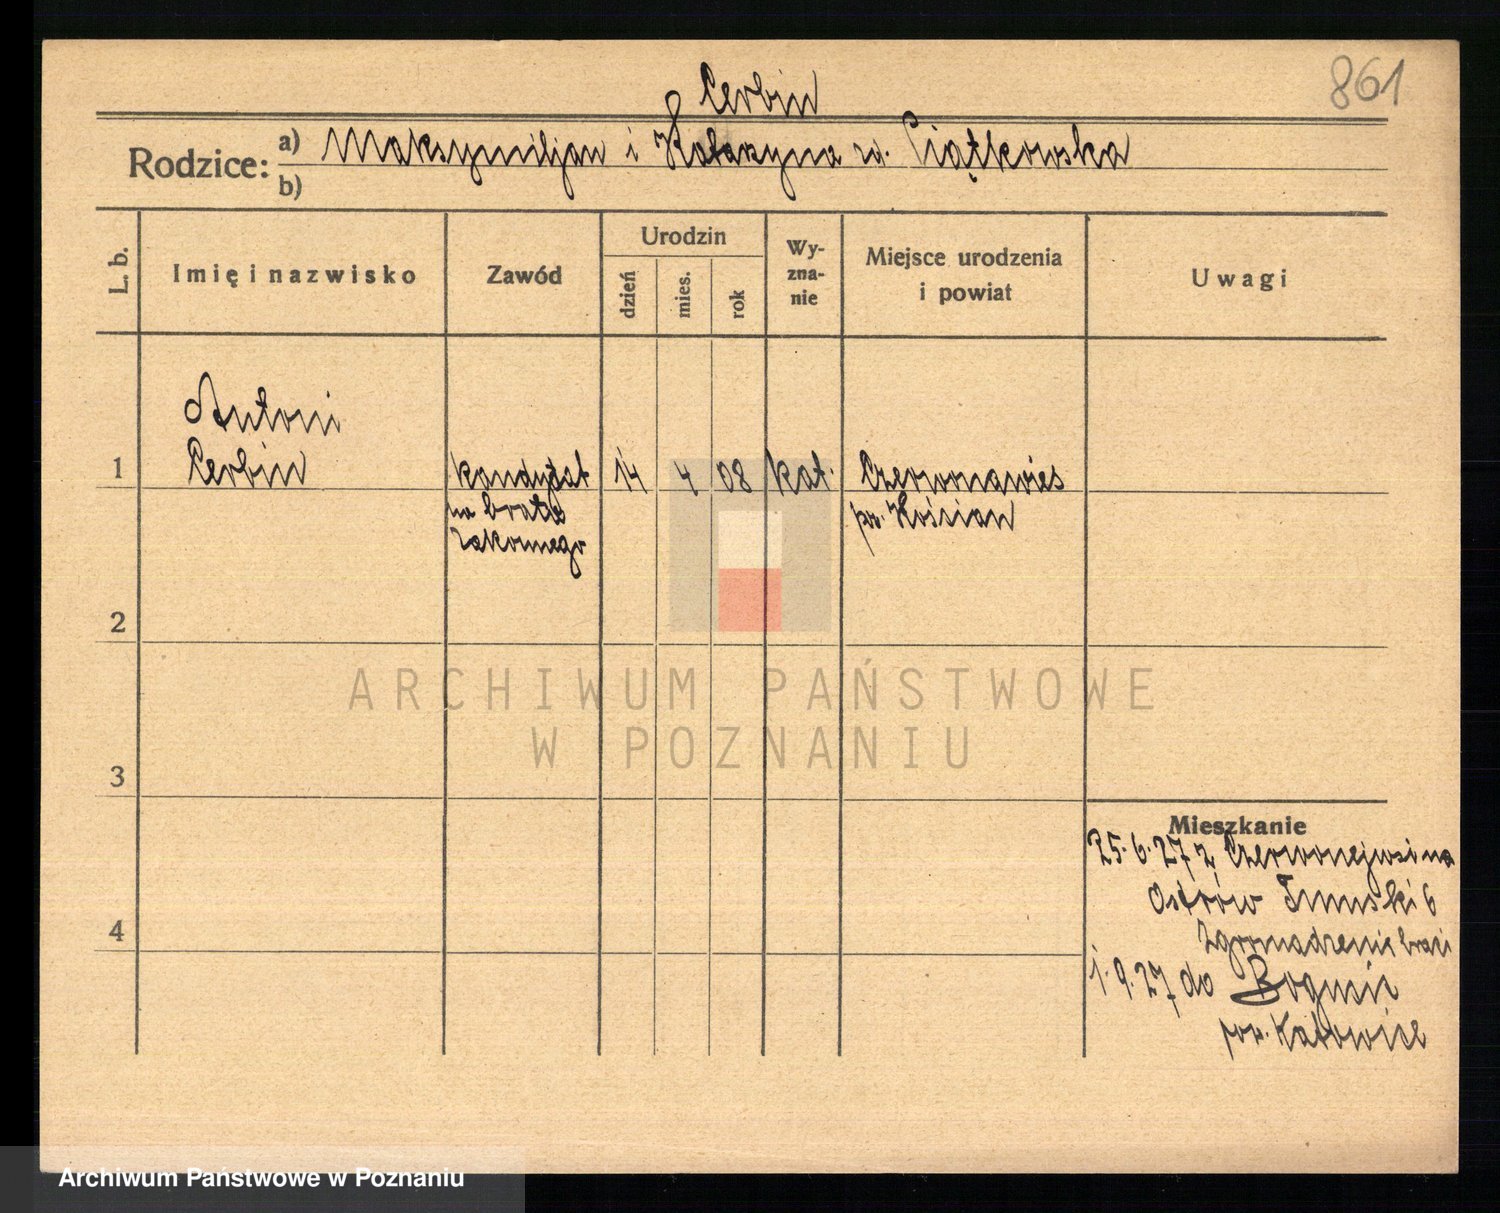 861
Cerbin
Rodzice: a) Maksymiljan i Katarzyna zd. Piątkowska
b)
L. b. Imię i nazwisko Zawód Urodzin dzień mies. rok Wy-zna-nie Miejsce urodzenia i powiat Uwagi
Antoni
1 Cerbin kandydat 14 4 08 kat. Czerwonawieś
na brata pow. Kościan
zakonnego
2
3
Mieszkanie
25.6.27 z Czerwonejwsi na
Ostrów 6
Zgromadzenie braci
4
1.9.27 do
pow. Katowice
ARCHIWUM PAŃSTWOWE
W POZNANIU
Archiwum Państwowe w Poznaniu